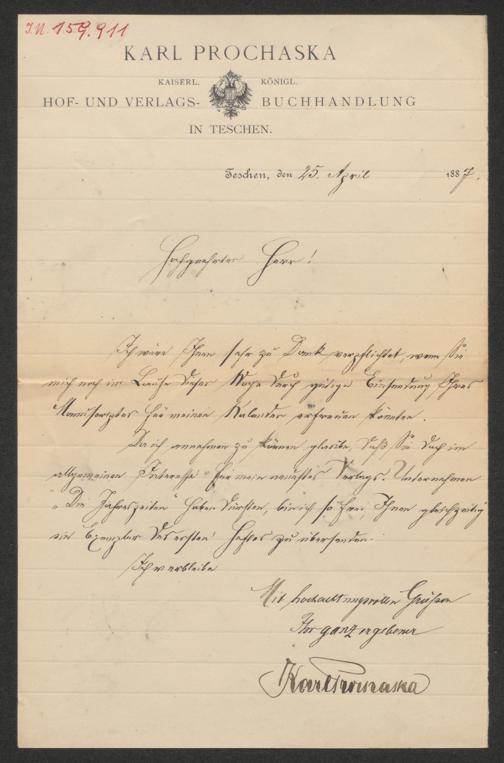 I.N. 159.911
KARL PROCHASKA
KAISERL. KÖNIGL.
HOF- UND VERLAGS- BUCHHANDLUNG
IN TESCHEN.
Teschen, den 25. April 1887.
Hochgeehrter Herr!
Ich wäre Ihnen sehr zu Dank verpflichtet, wenn Sie
mich noch im Laufe dieser Woche durch gütige Einsendung Ihres
Manuscriptes für meinen Kalender erfreuen könnten.
Da ich annehmen zu können glaube, daß Sie doch im
allgemeinen Interesse für mein neuestes Verlags-Unternehmen
"Die Jahreszeiten" haben dürften, bin ich so frei Ihnen gleichzeitig
ein Exemplar des ersten Heftes zu übersenden.
Ich verbleibe
Mit hochachtungsvollen Grüßen
Ihr ganz ergebener
Karl Prochaska